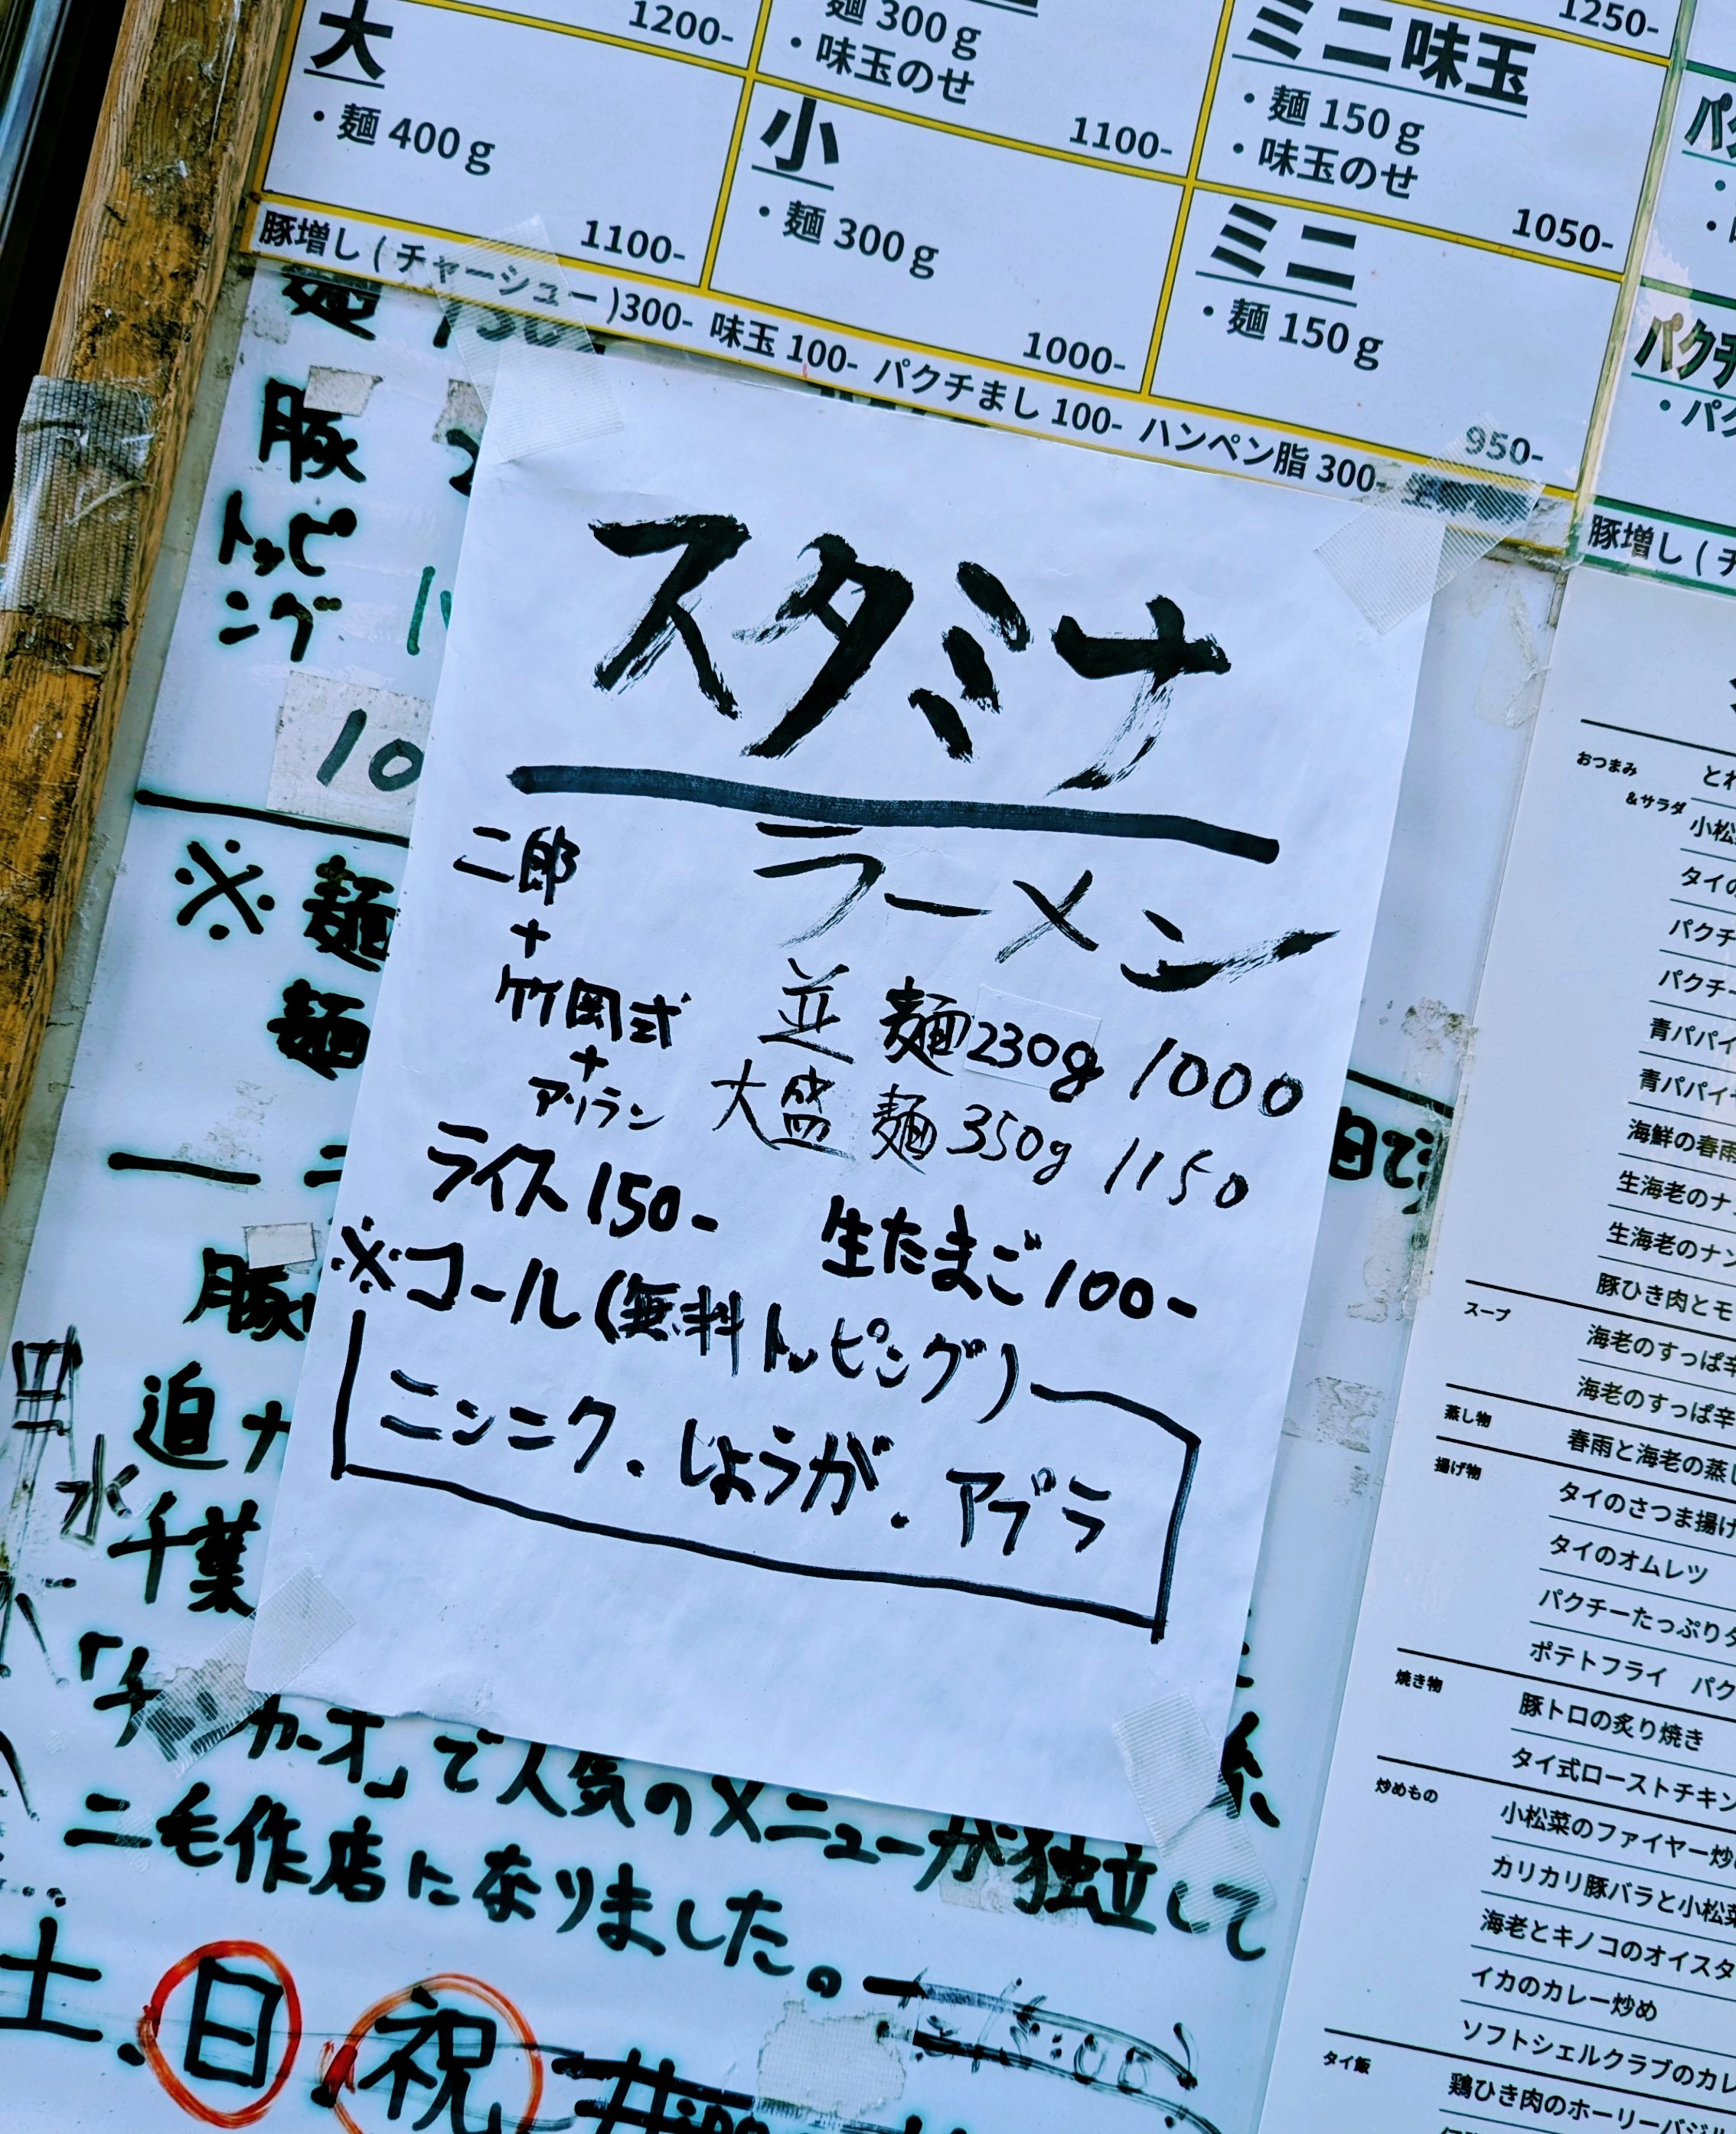 大
1200-
・麺 400g
1100-
麺 300g
・味玉のせ
1100-
小
・麺 300g
1000-
1250-
ミニ味玉
・麺 150g
・味玉のせ
1050-
ミニ
・麺 150g
950-
豚増し(チャーシュー)300- 味玉 100- パクチまし 100- ハンペン脂 300-
豚増し(チ
麺
豚
トッピ
ング
10
※麺
麺
スタミナ
ラーメン
二郎
+
竹岡式
+
アリラン
並 麺230g 1000
大盛 麺350g 1150
ライス150-
生たまご100-
※コール(無料トッピング)
ニンニク.しょうが.アブラ
豚
迫力
水
千葉
カーオ」で人気のメニューが独立して
二毛作店になりました。
土.日.祝
おつまみ
&サラダ
小松
タイの
パクチ
パクチー
青パパイ
青パパイヤ
海鮮の春雨
生海老のナ
生海老のナン
豚ひき肉とモ
スープ
海老のすっぱ辛
海老のすっぱ辛
蒸し物
春雨と海老の蒸し
揚げ物
タイのさつま揚げ
タイのオムレツ
パクチーたっぷり
ポテトフライ パク
焼き物
豚トロの炙り焼き
タイ式ローストチキン
炒めもの
小松菜のファイヤー炒
カリカリ豚バラと小松菜
海老とキノコのオイスタ
イカのカレー炒め
ソフトシェルクラブのカレ
タイ飯
鶏ひき肉のホーリーバジル